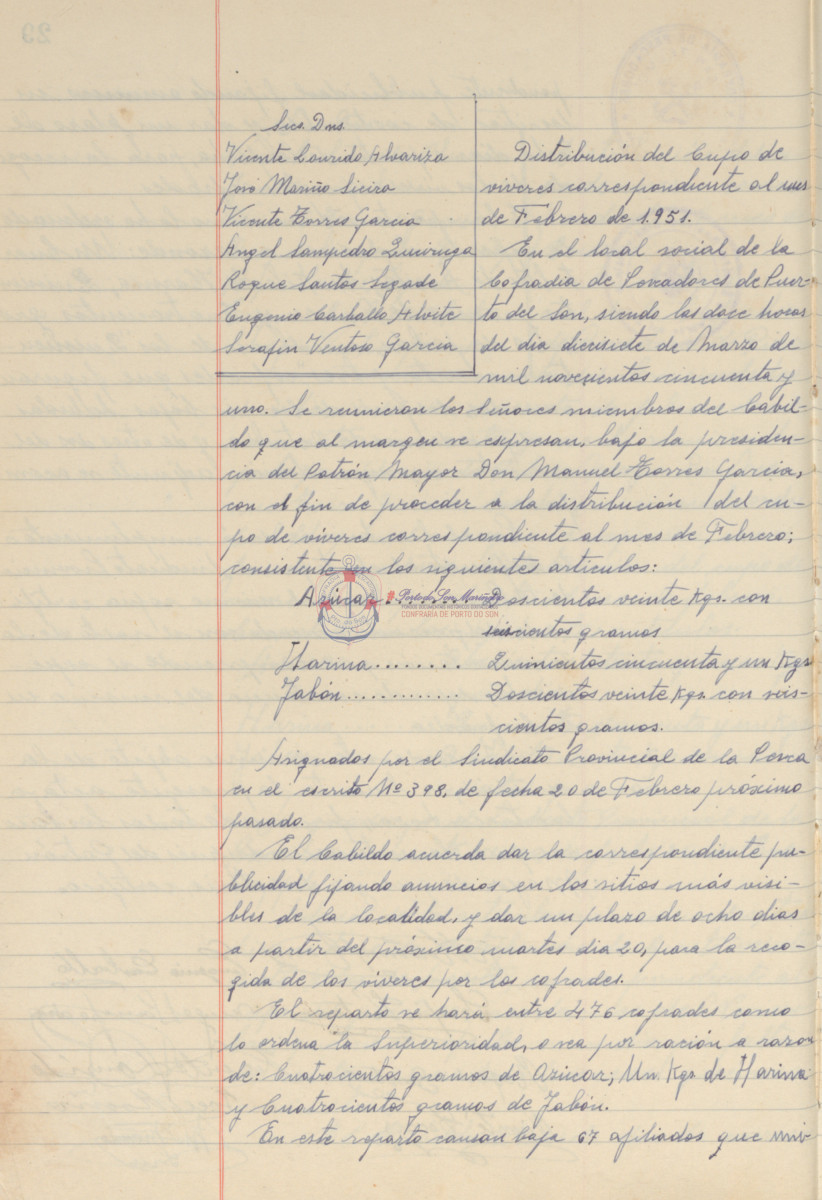 Sres. Dns.
Vicente Lourido Alvariza
José Mariño Sieira
Vicente Torres Garcia
Angel Sampedro Quiruga
Roque Santos Segade
Eugenio Carballo Alvite
Serafin Ventoso Garcia
Distribución del Cupo de
viveres correspondiente al mes
de Febrero de 1.951.
En el local social de la
Cofradia de Pescadores de Puer-
to del Son, siendo las doce horas
del dia diecisiete de Marzo de
mil novecientos cincuenta y
uno. Se reunieron los Señores miembros del Cabil-
do que al margen se espresan, bajo la presiden-
cia del Patrón Mayor Don Manuel Torres Garcia,
con el fin de proceder a la distribución del cu-
po de víveres correspondiente al mes de Febrero;
consistente en los siguientes articulos:
Azúcar........ Doscientos veinte Kgs. con
seiscientos gramos
Porto do Son Mariñeiro
CONFRARIA DE PORTO DO SON
Harina........ Quinientos cincuenta y un Kgs
Jabón............. Doscientos veinte Kgs. con seis-
cientos gramos.
Asignados por el Sindicato Provincial de la Pesca
en el escrito Nº 398, de fecha 20 de Febrero próximo
pasado.
El Cabildo acuerda dar la correspondiente pu-
blicidad fijando anuncios en los sitios más visi-
bles de la localidad, y dar un plazo de ocho dias
a partir del próximo martes dia 20, para la reco-
gida de los víveres por los cofrades.
El reparto se hará, entre 476 cofrades como
lo ordena la Superioridad, o sea por ración a razon
de: Cuatrocientos gramos de Azúcar; Un Kgs. de Harina
y Cuatrocientos gramos de Jabón.
En este reparto causan baja 67 afiliados que